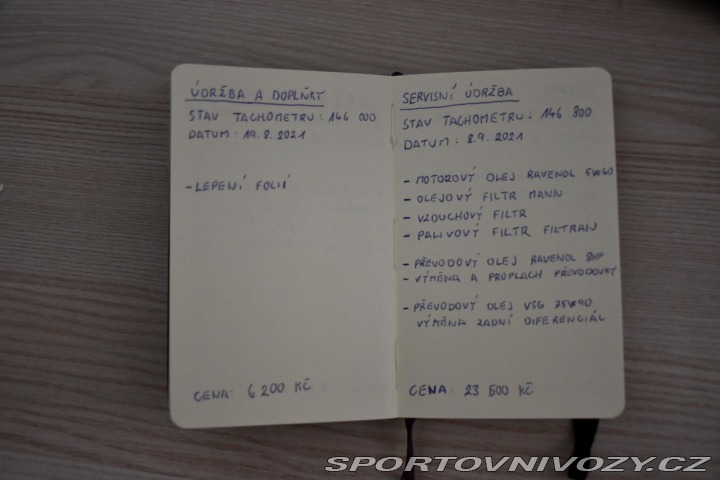 ÚDRŽBA A DOPLŇKY
STAV TACHOMETRU: 146 000
DATUM: 19.8.2021
- LEPENÍ FOLIÍ
CENA: 6 200 KČ
SERVISNÍ ÚDRŽBA
STAV TACHOMETRU: 146 800
DATUM: 8.9.2021
- MOTOROVÝ OLEJ RAVENOL 5W40
- OLEJOVÝ FILTR MANN
- VZDUCHOVÝ FILTR
- PALIVOVÝ FILTR FILTRAN
- PŘEVODOVÝ OLEJ RAVENOL 8HP
- VÝMĚNA A PROPLACH PŘEVODOVKY
- PŘEVODOVÝ OLEJ VSG 75W90
VÝMĚNA ZADNÍ DIFERENCIÁL
CENA: 23 500 KČ
SPORTOVNIVOZY.CZ